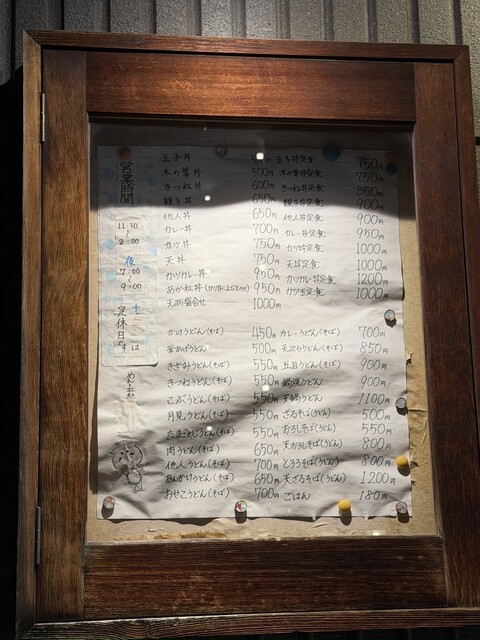 営業時間
11:30
~
2:00
夜
7:00
~
9:00
土
定休日です は
めん類
玉子丼
木の葉丼 500円
きつね丼 600円
親子丼 650円
他人丼 650円
カレー丼 700円
カツ丼 750円
天丼 750円
カツカレー丼 950円
あかね丼 950円
天ぷら盛合せ 1000円
玉子丼定食 750円
木の葉丼定食 750円
きつね丼定食 850円
親子丼定食 900円
他人丼定食 900円
カレー丼定食 950円
カツ丼定食 1000円
天丼定食 1000円
カツカレー丼定食 1200円
カツ玉定食 1000円
かけうどん(そば) 450円
釜あげうどん 500円
きざみうどん(そば) 550円
きつねうどん(そば) 550円
こぶうどん(そば) 550円
月見うどん(そば) 550円
たまごとじうどん(そば) 550円
肉うどん(そば) 650円
他人うどん(そば) 700円
あんかけうどん(そば) 650円
おやこうどん(そば) 700円
カレーうどん(そば) 700円
天ぷらうどん(そば) 850円
五目うどん(そば) 900円
鍋焼うどん 900円
天鍋うどん 1100円
ざるそば(うどん) 500円
おろしそば(うどん) 550円
天おろしそば(うどん) 800円
とろろそば(うどん) 800円
天ざるそば(うどん) 1200円
ごはん 180円